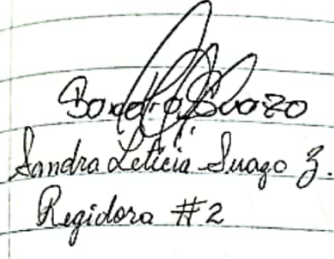 Sandra Suazo
Sandra Leticia Suazo Z.
Regidora #2